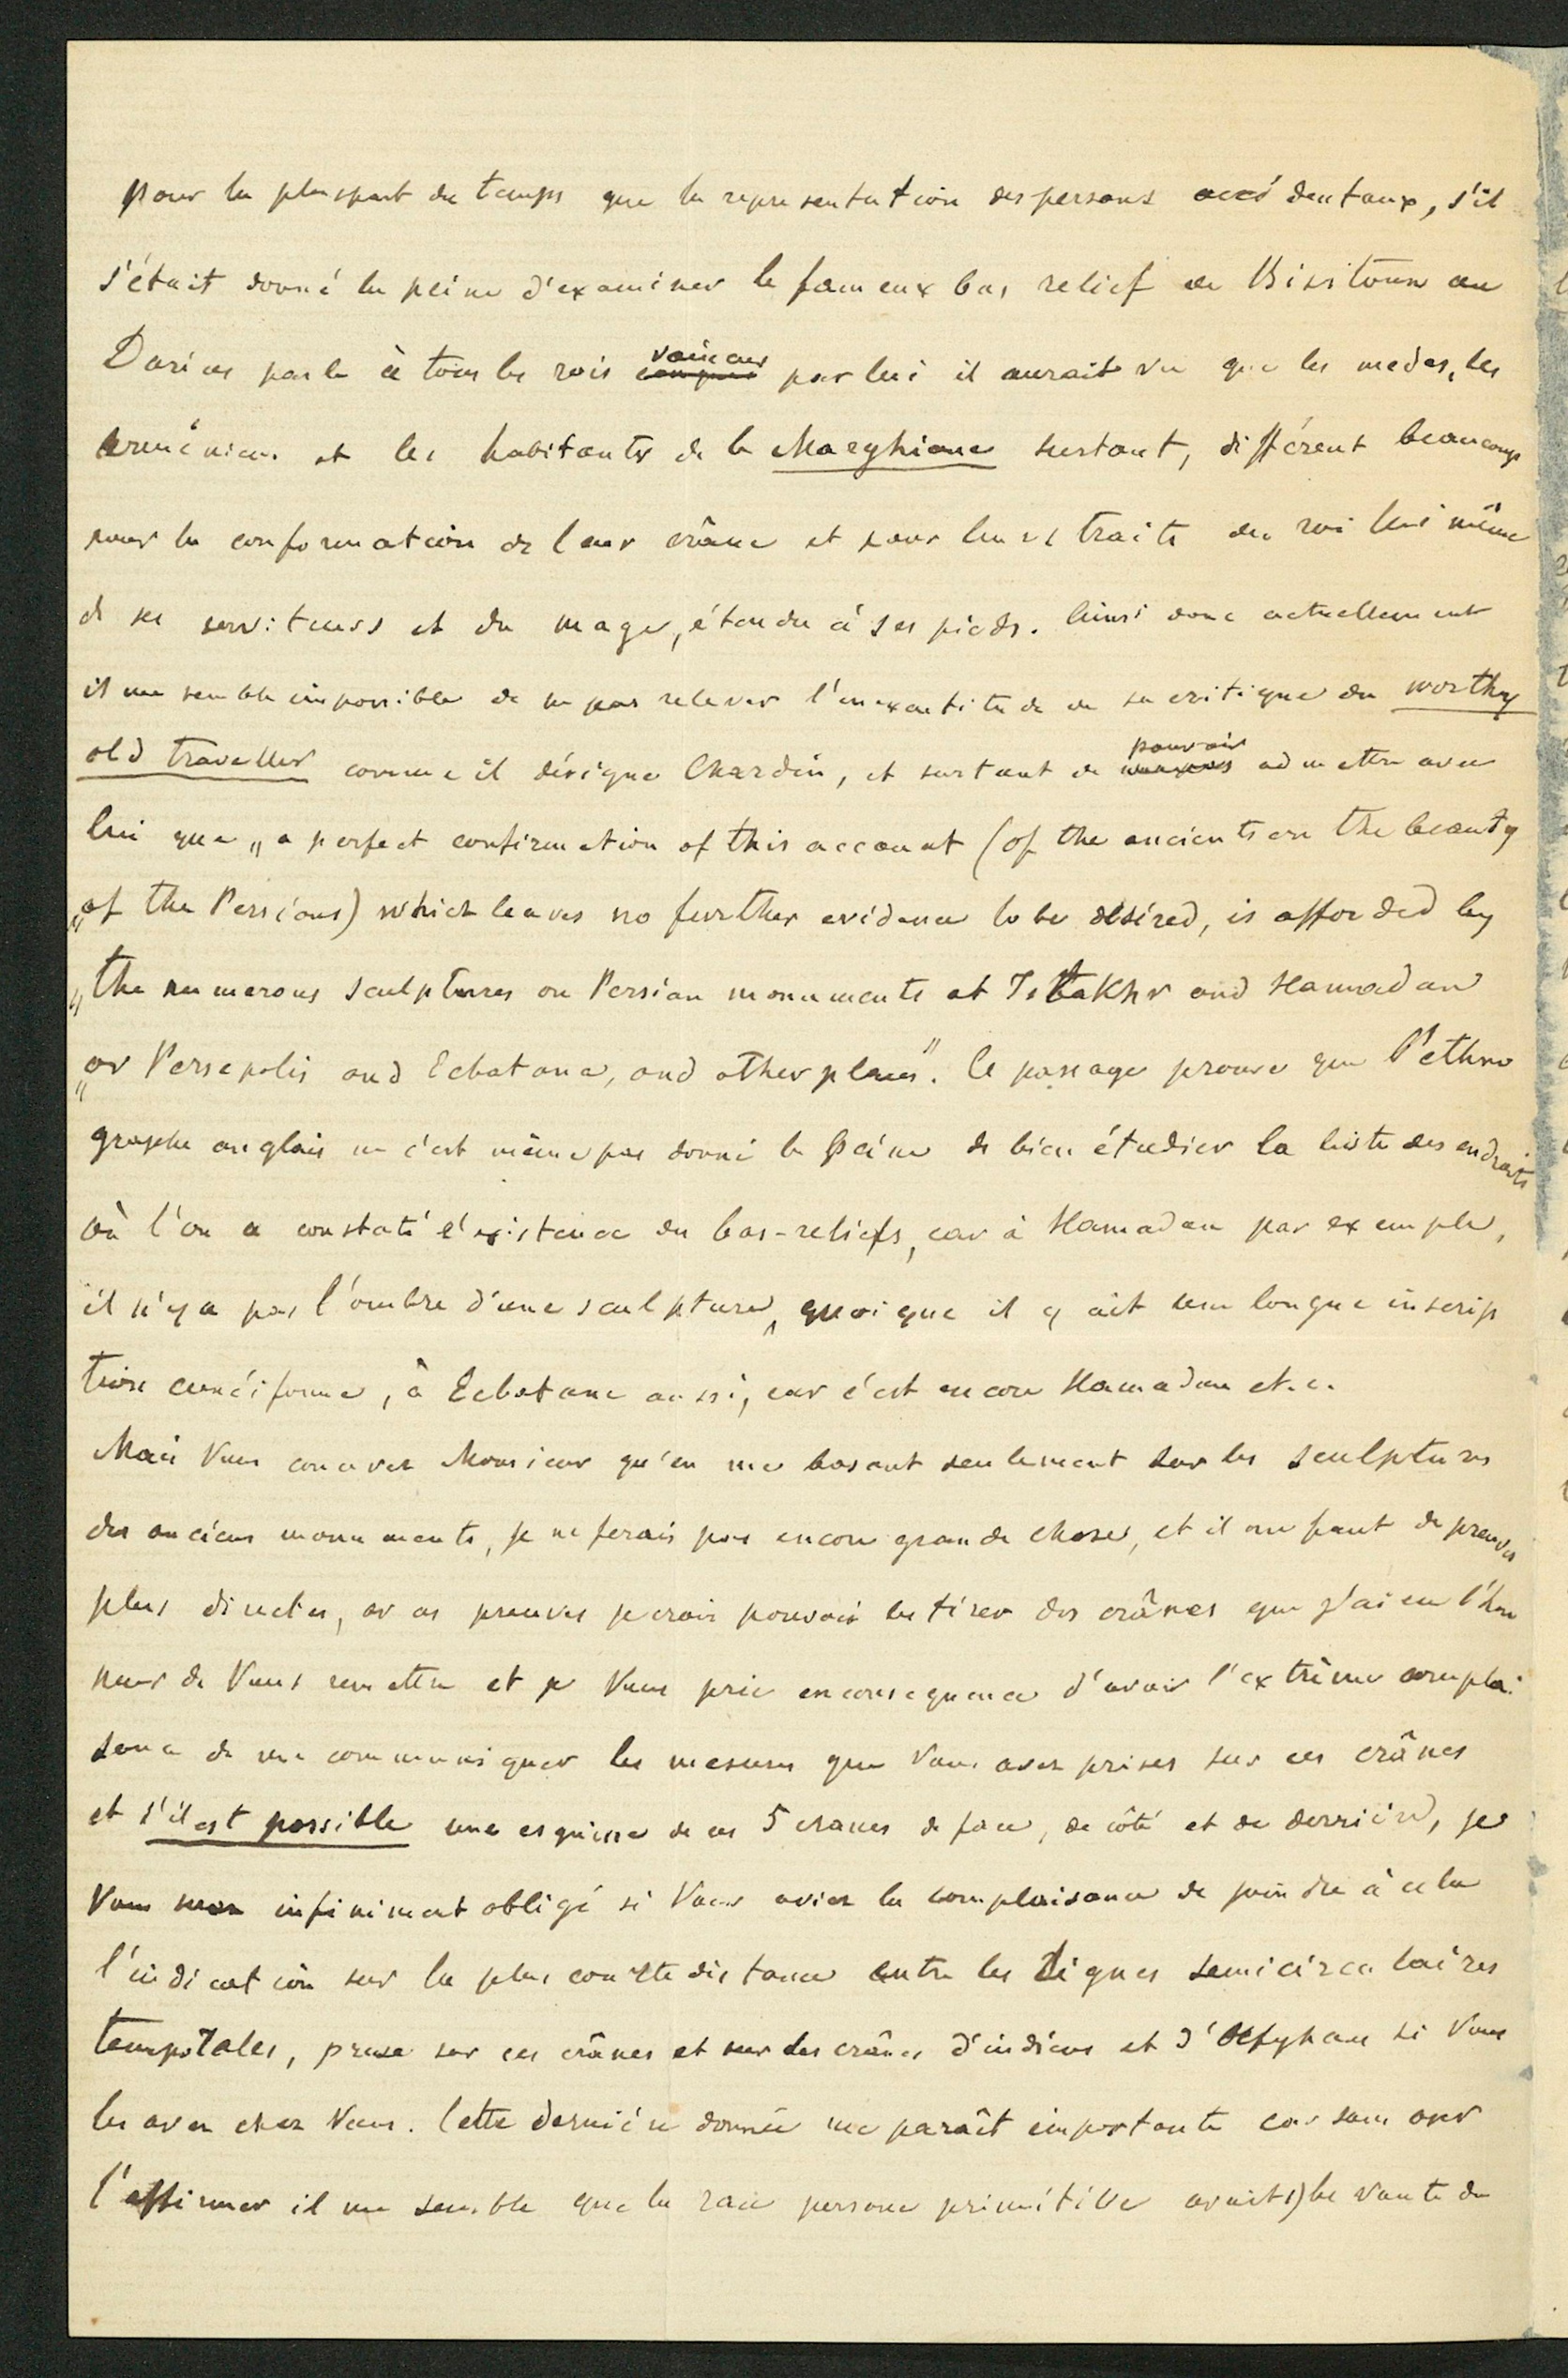 pour la pluspart du temps que la représentation des persans occidentaux, s'il
s'était donné la peine d'examiner le fameux bas relief de Bisitoun ou
Darius parle à tous les rois vaincus par lui il aurait vu que les medes, les
arméniens et les habitants de la Marghiane surtout, différent beaucoup
pour la conformation de leur crâne et pour leurs traits du roi lui même
de ses serviteurs et du mage, étendu à ses pieds. Ainsi donc actuellement
il me semble impossible de ne pas relever l'inexactitude de sa critique du worthy
old traveller comme il désigne Chardin, et surtout de pouvoir admettre avec
lui que „a perfect confirmation of this account (of the ancients on the beauty
„of the Persians) which leaves no further evidence to be desired, is afforded by
„the numerous sculptures on Persian monuments at Istakhr and Hamadan
„or Persepolis and Ecbatana, and other places". Ce passage prouve que l'ethno
graphe anglais ne c'est même pas donné la peine de bien étudier la liste des endroits
où l'on a constaté l'existence du bas-reliefs, car à Hamadan par exemple,
il n'y a pas l'ombre d'une sculpture, quoique il y ait une longue inscrip
tion cunéiforme, à Ecbatane aussi, car c'est encore Hamadan et.c.
Mais Vous concevez Monsieur qu'en me basant seulement sur les sculptures
des anciens monuments, je ne ferais pas encore grande chose, et il me faut de preuves
plus directes, or ces preuves je crois pouvoir les tirer des crânes que j'ai eu l'hon
neur de Vous remettre et je Vous prie en conséquence d'avoir l'extrême complai
sance de me communiquer les mesures que Vous avez prises sur ces crânes
et s'il est possible une esquisse de ces 5 cranes de face, de côté et de derrière, je
Vous infiniment obligé si Vous aviez la complaisance de joindre à cela
l'indication sur la plus courte distance entre les lignes semicirculaires
temporales, prise sur ces crânes et sur des crânes d'indiens et d'Afghans si Vous
les avez chez Vous. Cette dernière donnée me paraît importante car sans oser
l'affirmer il me semble que la race persane primitive avait 1) le vante du